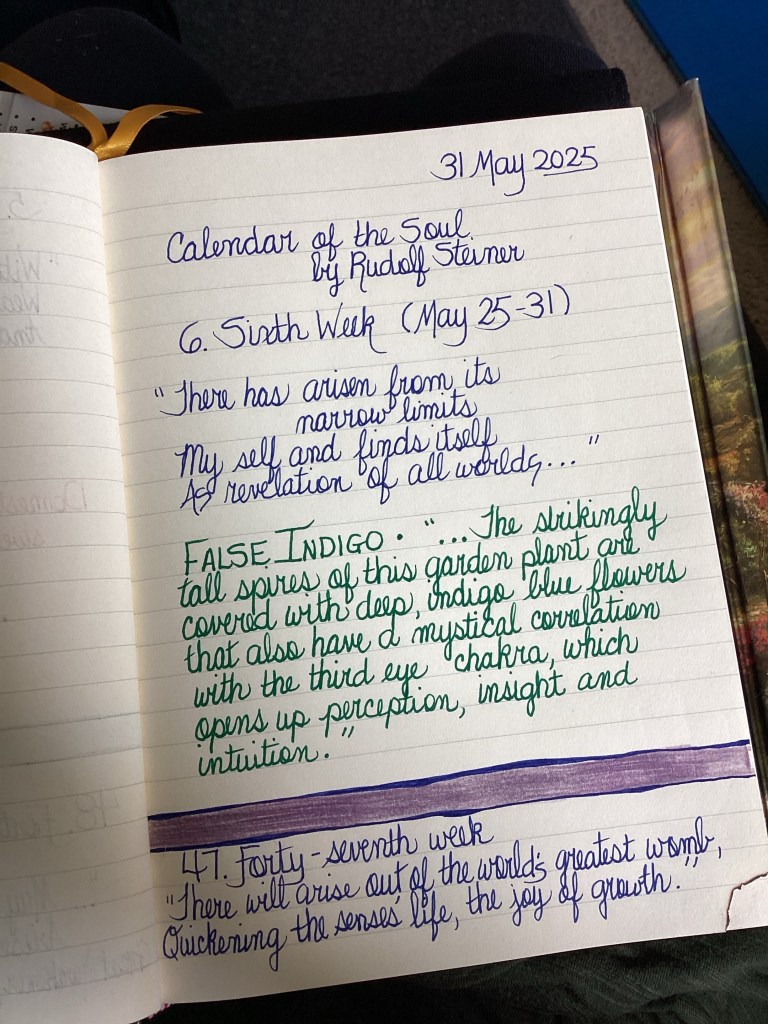 31 May 2025
Calendar of the Soul
by Rudolf Steiner
6. Sixth Week (May 25-31)
"There has arisen from its
narrow limits
My self and finds itself
As revelation of all worlds, ..."
FALSE INDIGO · "... The strikingly
tall spires of this garden plant are
covered with deep, indigo blue flowers
that also have a mystical correlation
with the third eye chakra, which
opens up perception, insight and
intuition."
47. Forty-seventh week
"There will arise out of the world's greatest womb,
Quickening the senses' life, the joy of growth."